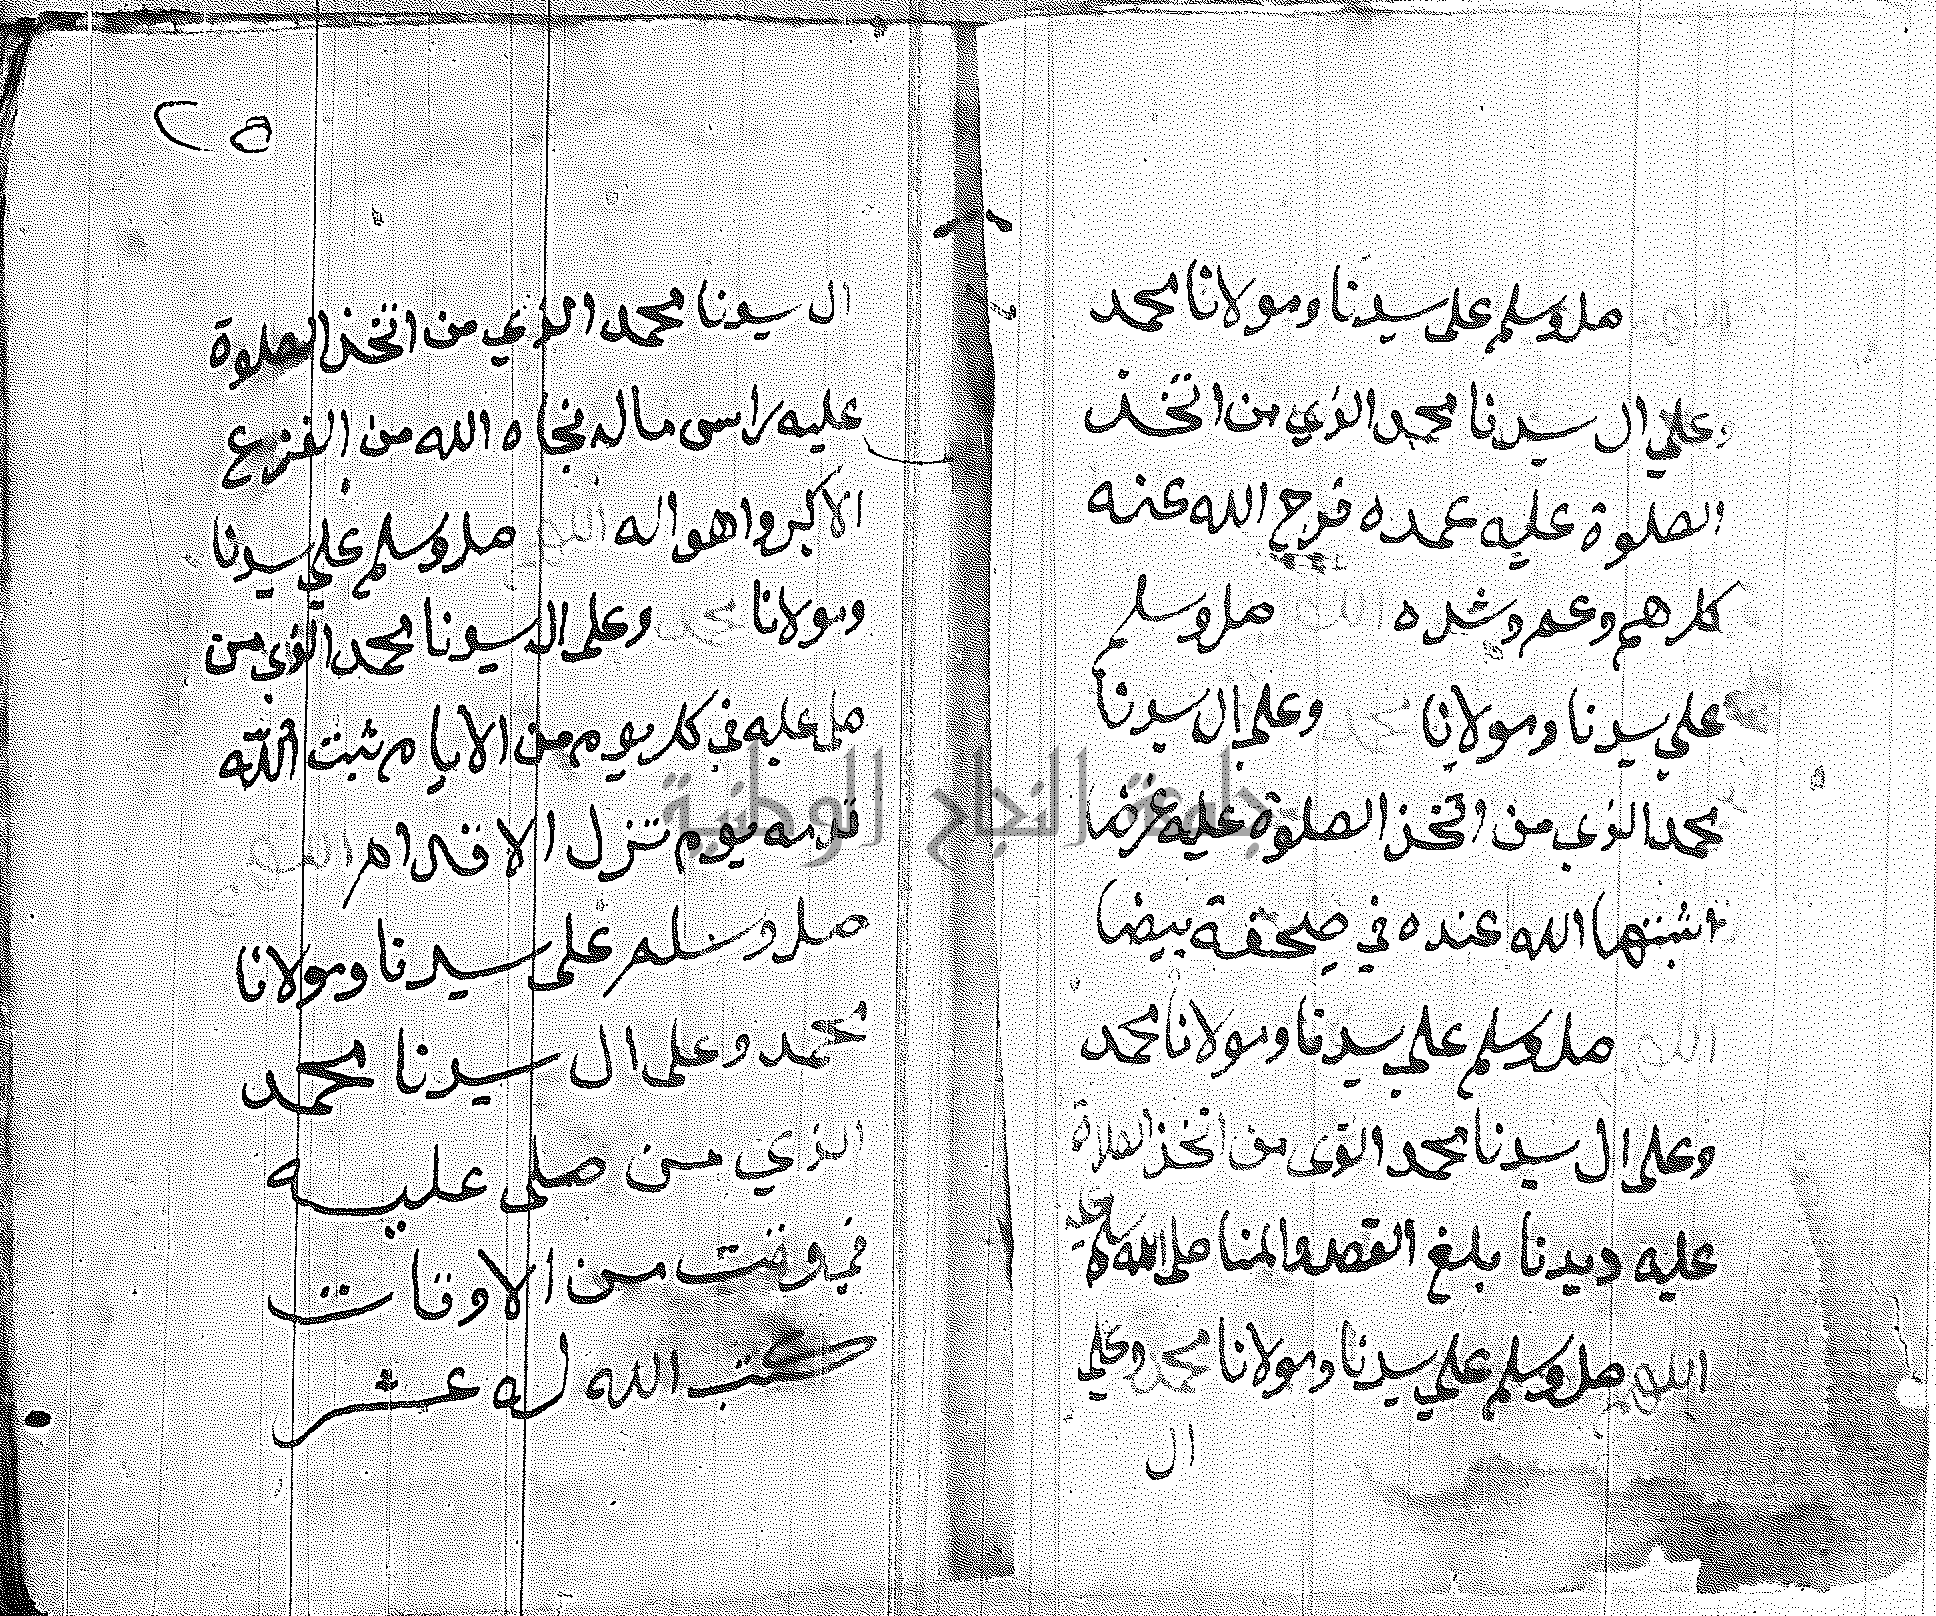 صل وسلم على سيدنا ومولانا محمد
وعلي ال سيدنا محمد الذي من اتخذ
الصلوة عليه عمده فرج الله عنه
كل هم وغم وشده اللهم صل وسلم
علي سيدنا ومولانا محمد وعلى ال سيدنا
محمد الذي من اتخذ الصلوة عليه غرضا
اثبتها الله عنده في صحفة بيضا
اللهم صل وسلم علي سيدنا ومولانا محمد
وعلى ال سيدنا محمد الذي من اتخذ الصلاة
عليه ديدنا بلغ القصد والمنا صلى الله عليه
اللهم صل وسلم علي سيدنا ومولانا محمد وعلي
ال
ال سيدنا محمد الذي من اتخذ الصلوة
عليه راس ماله نجاه الله من الفزع
الاكبر واهواله اللهم صل وسلم علي سيدنا
ومولانا محمد وعلى ال سيدنا محمد الذي من
صلى عليه في كل يوم من الايام ثبت الله
قدمه يوم تزل الاقدام اللهم
صل وسلم على سيدنا ومولانا
محمد وعلى ال سيدنا محمد
الذي من صلى عليه
في وقت من الاوقات
كتب الله له عشر
جامعة النجاح الوطنية